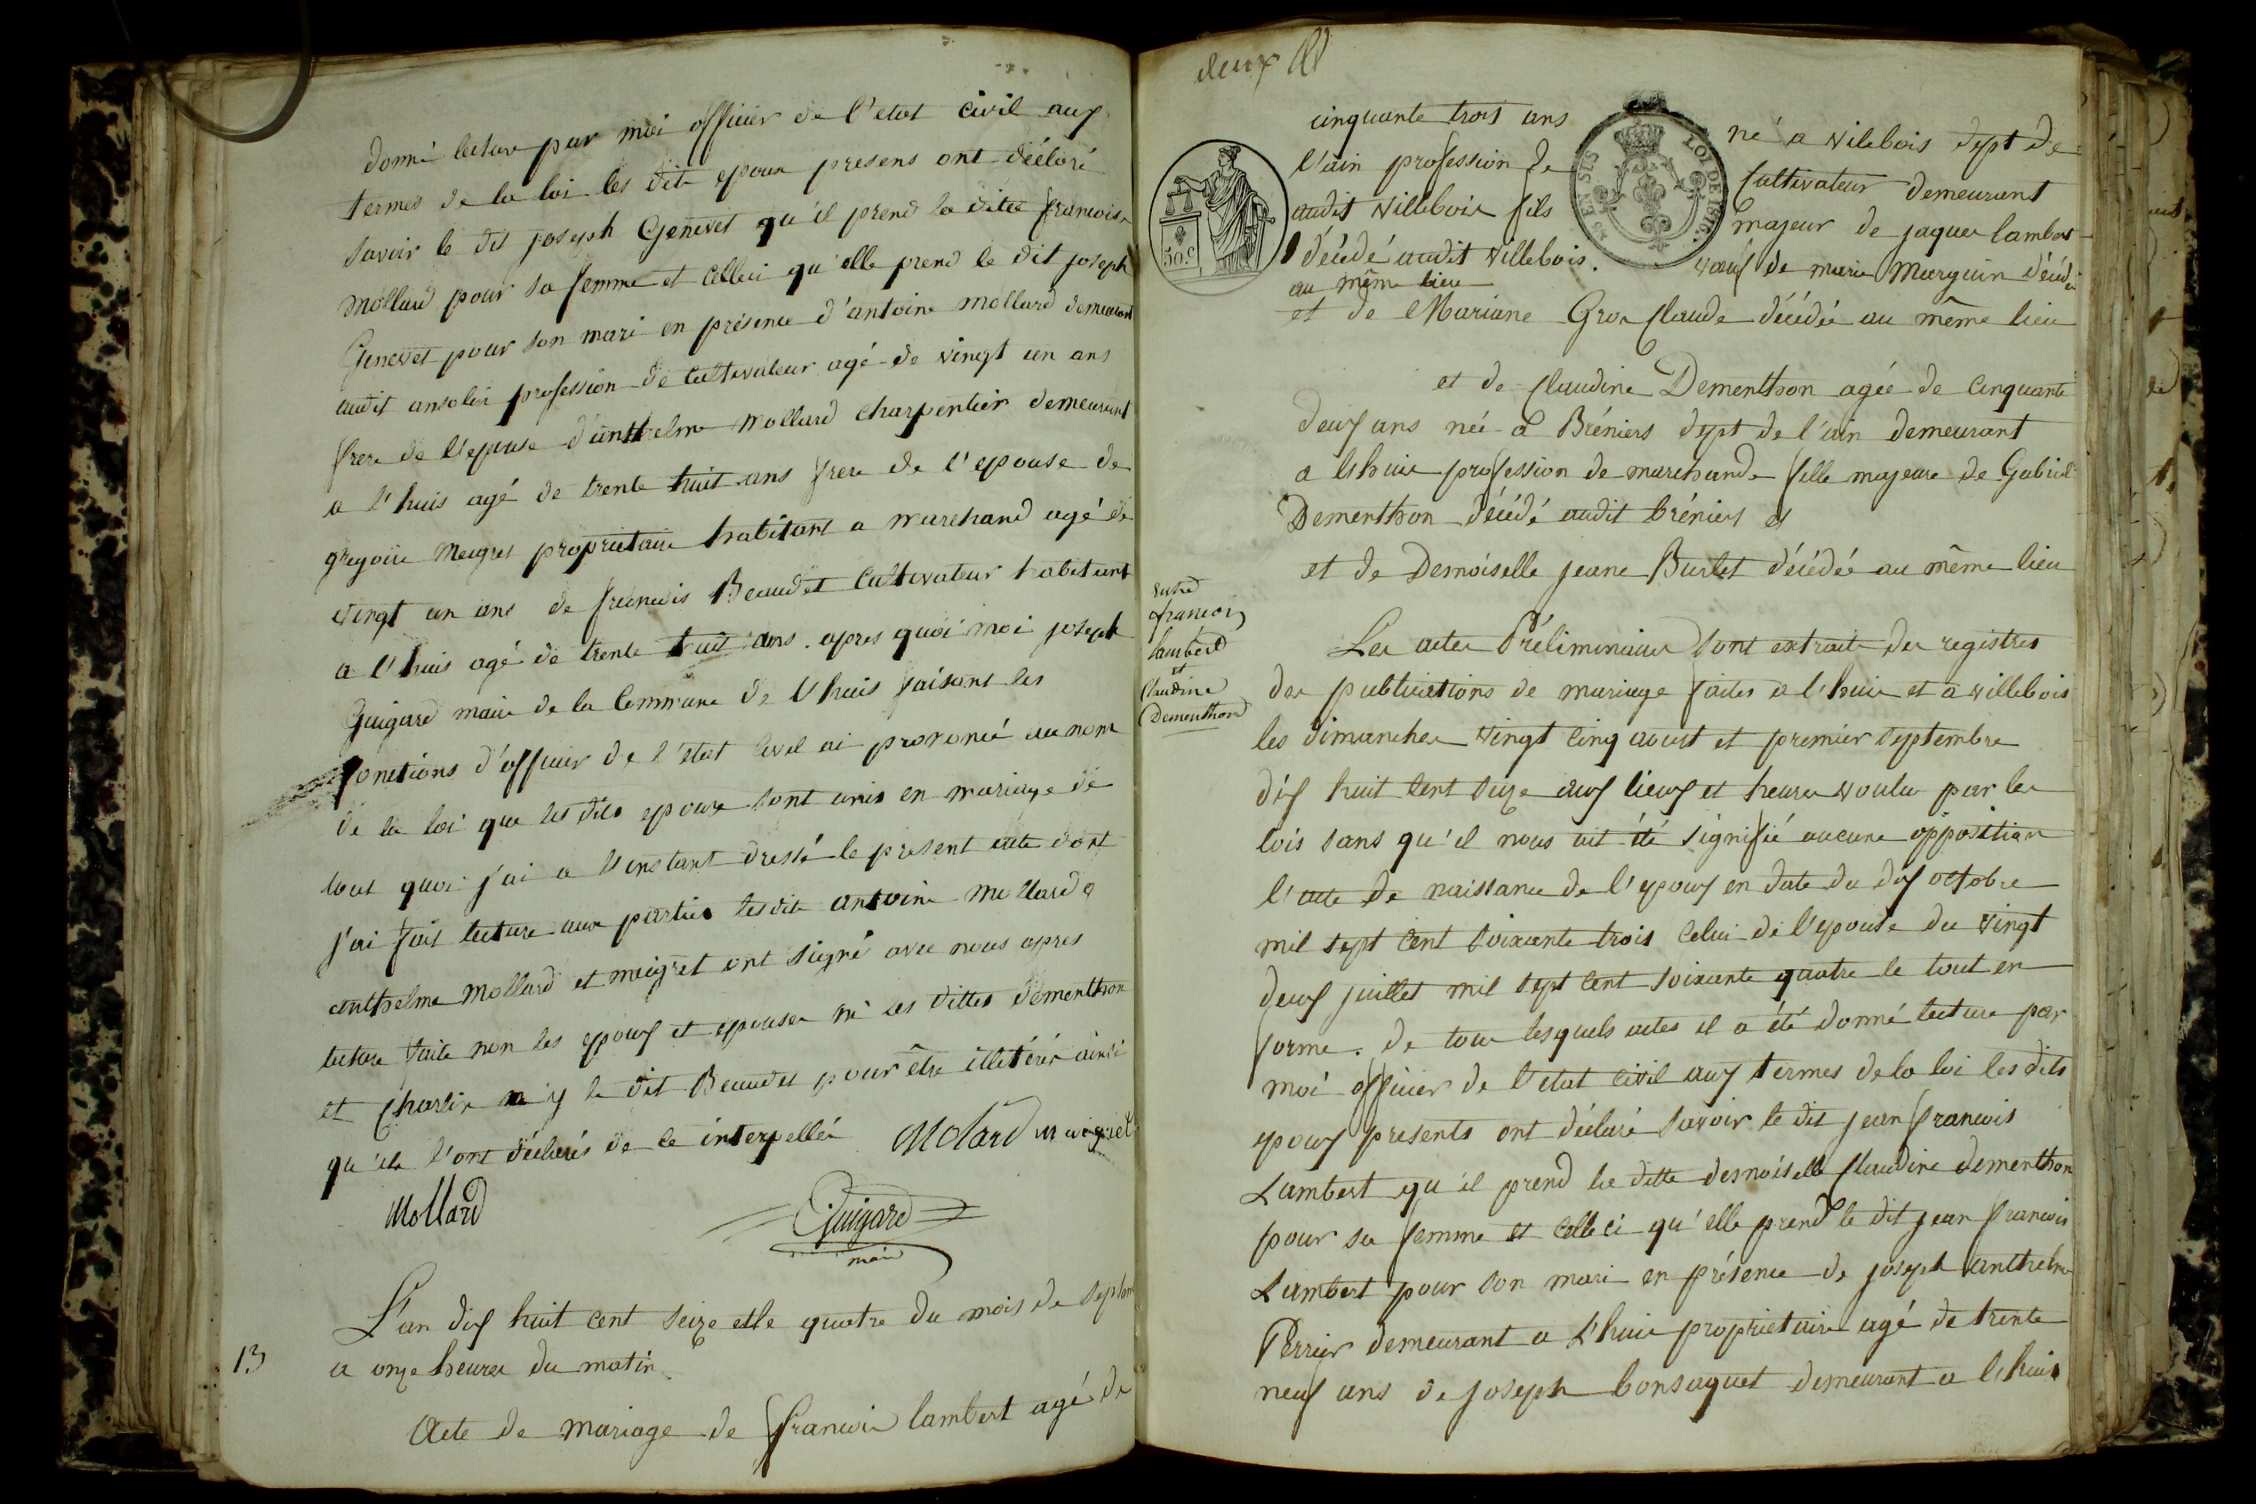 donné lecture par moi officier de l'etat civil aux
termes de la loi les dits epoux presens ont déclaré
savoir le dit joseph Genevet qu'il prend la ditte francoise
mollard pour sa femme et celleci qu'elle prend le dit joseph
Genevet pour son mari en présence d'antoine mollard demeurant
audit profession de cultivateur agé de vingt un ans
frere de l'epouse d'anthelme mollard charpentier demeurant
a l'huis agé de trente huit ans frere de l'epouse de
gregoire meigret propriétaire habitant a marchand agé de
vingt un ans de francois Beaudet cultivateur habitant
a l'huis agé de trente huit ans . apres quoi moi joseph
Guigard maire de la Commune de l'huis faisant les
fonctions d'officier de l'etat civil ai prononcé au nom
de la loi que les dits epoux sont unis en mariage de
tout quoi j'ai a l'instant dressé le present acte dont
j'ai fait lecture aux parties lesdits antoine mollard
anthelme mollard et meigret ont signé avec nous apres
lecture faite non les epoux et epouse ni les dittes dementhon
et Charlin le dit Beaudet pour être illetérés ainsi
qu'ils l'ont déclarés de ce interpellés Molard meigret
Mollard
Guigard
maire
13
L'an dix huit cent seize et le quatre du mois de septem
a onze heures du matin
Acte de mariage de francois lambert agé de
deux
cinquante trois ans né a vilebois dept de
l'ain profession de Cultivateur demeurant
audit villebois fils majeur de jaques lambert
décédé audit villebois. vœuf de marie Marguin décédée
au même lieu
et de Mariane Gros Claude décédée au même lieu
50. C
LOI DE 1816.
et de Claudine Dementhon agée de cinquante
deux ans née a Bréniers dept de l'ain demeurant
a lhuis profession de marchande fille majeure de Gabriel
Dementhon décédé audit bréniers et
et de Demoiselle jeane Burlet décédée au même lieu
entre
francois
lambert
et
Claudine
Dementhon
Les actes Préliminaires sont extraits des registres
des publications de mariage faites a l'huis et a villebois
les dimanches vingt cinq aoust et premier septembre
dix huit cent seize aux lieux et heures voulu par les
lois sans qu'il nous ait été signifié aucune opposition
l'acte de naissance de l'epoux en date du dix octobre
mil sept cent soixante trois celui de l'epouse du vingt
deux juillet mil sept cent soixante quatre le tout en
forme . de tous lesquels actes il a été donné lecture par
moi officier de l'etat civil aux termes de la loi les dits
epoux presents ont déclaré savoir le dit jean francois
Lambert qu'il prend la ditte demoiselle Claudine dementhon
pour sa femme et celle ci qu'elle prend le dit jean francois
Lambert pour son mari en présence de joseph anthelme
Perrier demeurant a L'huis propriétaire agé de trente
neuf ans de joseph bonsaquet demeurant a lhuis